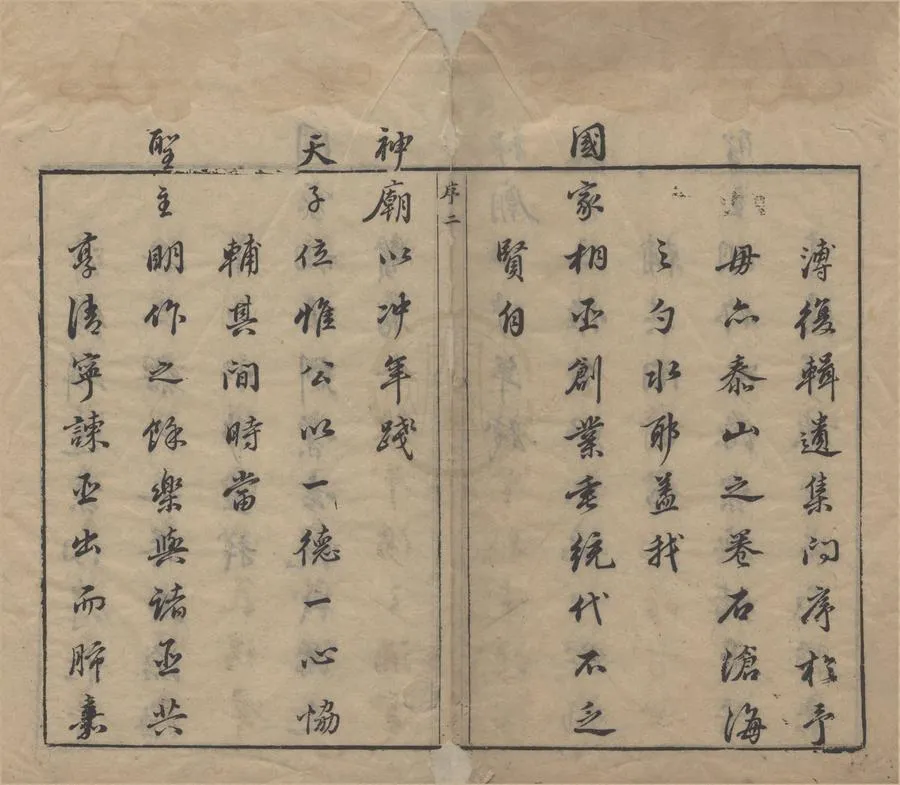 溥復輯遺集問序於予
毋亦泰山之卷石滄海
之勺水耶蓋我
國家相臣創業垂統代不乏
賢自
序二
神廟以冲年踐
天子位惟公以一德一心恊
輔其間時當
聖主明作之餘樂與諸臣共
享清寧諫臣出而肺